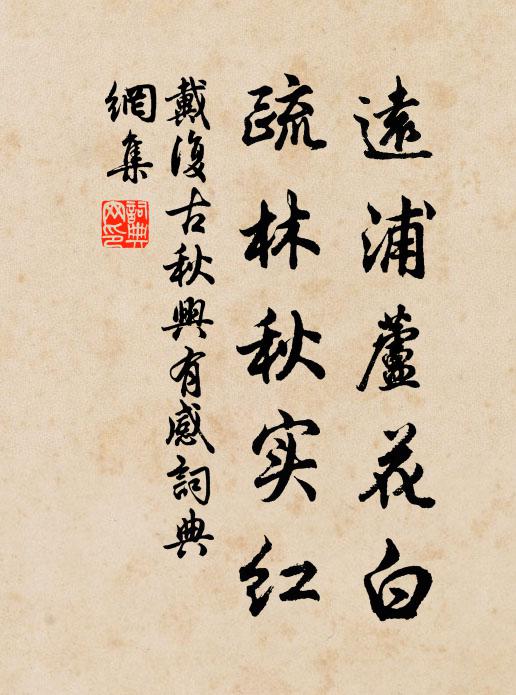 遠浦蘆花白
疏林秋实红
戴復古秋興有感詞典
網集
詞典
网印